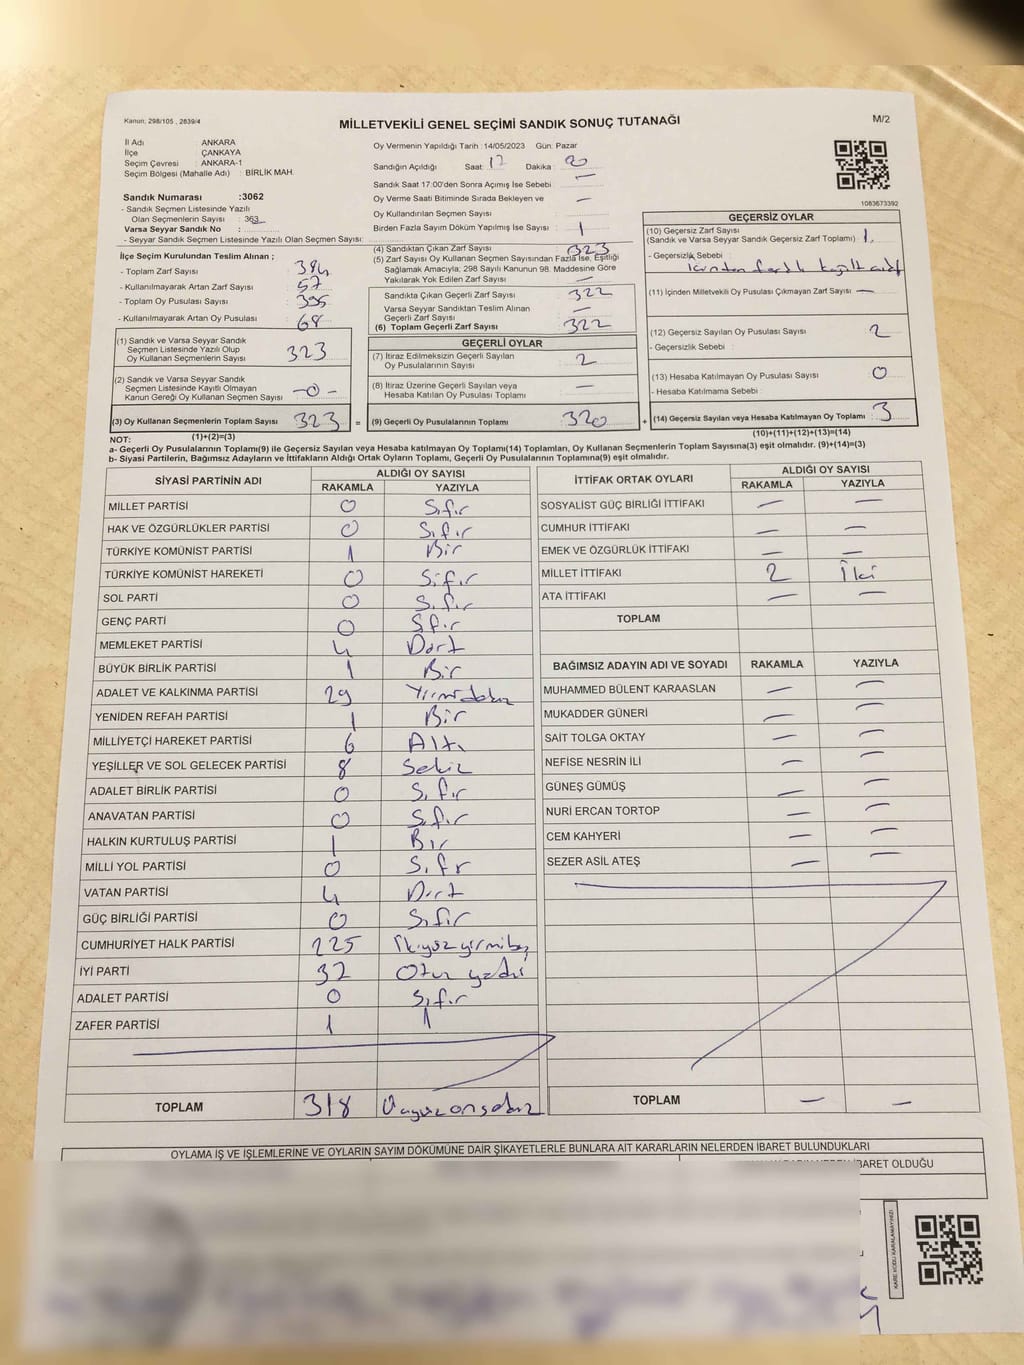 Kanun; 298/105 , 2839/4
MİLLETVEKİLİ GENEL SEÇİMİ SANDIK SONUÇ TUTANAĞI
M/2
İl Adı ANKARA
İlçe ÇANKAYA
Seçim Çevresi : ANKARA-1
Seçim Bölgesi (Mahalle Adı) : BİRLİK MAH.
Oy Vermenin Yapıldığı Tarih : 14/05/2023 Gün: Pazar
Sandığın Açıldığı Saat: 17 Dakika : 20
Sandık Saat 17:00'den Sonra Açımış İse Sebebi —
Oy Verme Saati Bitiminde Sırada Bekleyen ve
Oy Kullandırılan Seçmen Sayısı —
Birden Fazla Sayım Döküm Yapılmış İse Sayısı : 1
1083673392
Sandık Numarası :3062
- Sandık Seçmen Listesinde Yazılı
Olan Seçmenlerin Sayısı : 363
Varsa Seyyar Sandık No :
- Seyyar Sandık Seçmen Listesinde Yazılı Olan Seçmen Sayısı:
İlçe Seçim Kurulundan Teslim Alınan ;
- Toplam Zarf Sayısı
- Kullanılmayarak Artan Zarf Sayısı : 57
- Toplam Oy Pusulası Sayısı :
- Kullanılmayarak Artan Oy Pusulası : 68
(1) Sandık ve Varsa Seyyar Sandık
Seçmen Listesinde Yazılı Olup
Oy Kullanan Seçmenlerin Sayısı 323
(2) Sandık ve Varsa Seyyar Sandık
Seçmen Listesinde Kayıtlı Olmayan
Kanun Gereği Oy Kullanan Seçmen Sayısı —0—
(3) Oy Kullanan Seçmenlerin Toplam Sayısı 323
(1)+(2)=(3)
(4) Sandıktan Çıkan Zarf Sayısı 323
(5) Zarf Sayısı Oy Kullanan Seçmen Sayısından Fazla İse, Eşitliği
Sağlamak Amacıyla; 298 Sayılı Kanunun 98. Maddesine Göre
Yakılarak Yok Edilen Zarf Sayısı —
Sandıkta Çıkan Geçerli Zarf Sayısı 322
Varsa Seyyar Sandıktan Teslim Alınan
Geçerli Zarf Sayısı —
(6) Toplam Geçerli Zarf Sayısı 322
GEÇERLİ OYLAR
(7) İtiraz Edilmeksizin Geçerli Sayılan
Oy Pusulalarının Sayısı 2
(8) İtiraz Üzerine Geçerli Sayılan veya
Hesaba Katılan Oy Pusulası Toplamı —
= (9) Geçerli Oy Pusulalarının Toplamı 320 +
GEÇERSİZ OYLAR
(10) Geçersiz Zarf Sayısı
(Sandık ve Varsa Seyyar Sandık Geçersiz Zarf Toplamı) 1
- Geçersizlik Sebebi :
(11) İçinden Milletvekili Oy Pusulası Çıkmayan Zarf Sayısı —
(12) Geçersiz Sayılan Oy Pusulası Sayısı 2
- Geçersizlik Sebebi :
(13) Hesaba Katılmayan Oy Pusulası Sayısı 0
- Hesaba Katılmama Sebebi :
(14) Geçersiz Sayılan veya Hesaba Katılmayan Oy Toplamı 3
(10)+(11)+(12)+(13)=(14)
NOT:
a- Geçerli Oy Pusulalarının Toplamı(9) ile Geçersiz Sayılan veya Hesaba katılmayan Oy Toplamı(14) Toplamları, Oy Kullanan Seçmenlerin Toplam Sayısına(3) eşit olmalıdır. (9)+(14)=(3)
b- Siyasi Partilerin, Bağımsız Adayların ve İttifakların Aldığı Ortak Oyların Toplamı, Geçerli Oy Pusulalarının Toplamına(9) eşit olmalıdır.
SİYASİ PARTİNİN ADI ALDIĞI OY SAYISI
RAKAMLA YAZIYLA
MİLLET PARTİSİ 0 Sıfır
HAK VE ÖZGÜRLÜKLER PARTİSİ 0 Sıfır
TÜRKİYE KOMÜNİST PARTİSİ 1 Bir
TÜRKİYE KOMÜNİST HAREKETİ 0 Sıfır
SOL PARTİ 0 Sıfır
GENÇ PARTİ 0 Sıfır
MEMLEKET PARTİSİ 4 Dört
BÜYÜK BİRLİK PARTİSİ 1 Bir
ADALET VE KALKINMA PARTİSİ 29 Yirmidokuz
YENİDEN REFAH PARTİSİ 1 Bir
MİLLİYETÇİ HAREKET PARTİSİ 6 Altı
YEŞİLLER VE SOL GELECEK PARTİSİ 8 Sekiz
ADALET BİRLİK PARTİSİ 0 Sıfır
ANAVATAN PARTİSİ 0 Sıfır
HALKIN KURTULUŞ PARTİSİ 1 Bir
MİLLİ YOL PARTİSİ 0 Sıfır
VATAN PARTİSİ 4 Dört
GÜÇ BİRLİĞİ PARTİSİ 0 Sıfır
CUMHURİYET HALK PARTİSİ 225 İkiyüzyirmibeş
İYİ PARTİ 37 Otuz yedi
ADALET PARTİSİ 0 Sıfır
ZAFER PARTİSİ 1 1
TOPLAM 318 Üçyüzonsekiz
İTTİFAK ORTAK OYLARI ALDIĞI OY SAYISI
RAKAMLA YAZIYLA
SOSYALİST GÜÇ BİRLİĞİ İTTİFAKI — —
CUMHUR İTTİFAKI — —
EMEK VE ÖZGÜRLÜK İTTİFAKI — —
MİLLET İTTİFAKI 2 İki
ATA İTTİFAKI — —
TOPLAM
BAĞIMSIZ ADAYIN ADI VE SOYADI RAKAMLA YAZIYLA
MUHAMMED BÜLENT KARAASLAN — —
MUKADDER GÜNERİ — —
SAİT TOLGA OKTAY — —
NEFİSE NESRİN İLİ — —
GÜNEŞ GÜMÜŞ — —
NURİ ERCAN TORTOP — —
CEM KAHYERİ — —
SEZER ASİL ATEŞ — —
TOPLAM — —
OYLAMA İŞ VE İŞLEMLERİNE VE OYLARIN SAYIM DÖKÜMÜNE DAİR ŞİKAYETLERLE BUNLARA AİT KARARLARIN NELERDEN İBARET BULUNDUKLARI
İBARET OLDUĞU
KARE KODU KARALAMAYINIZ!